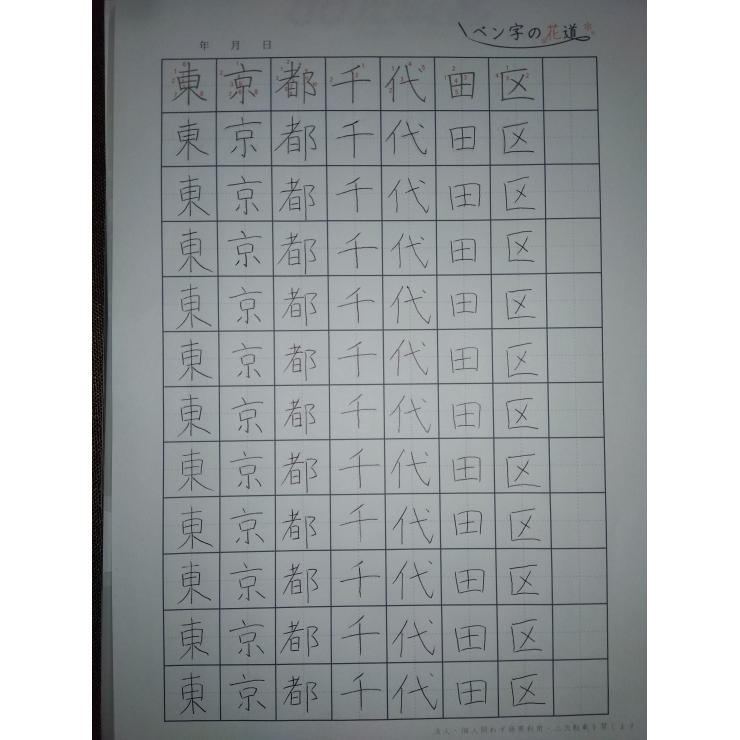 ペン字の花道
年 月 日
東京都千代田区
東京都千代田区
東京都千代田区
東京都千代田区
東京都千代田区
東京都千代田区
東京都千代田区
東京都千代田区
東京都千代田区
東京都千代田区
東京都千代田区
東京都千代田区
法人・個人問わず商業利用・二次転載を禁じます